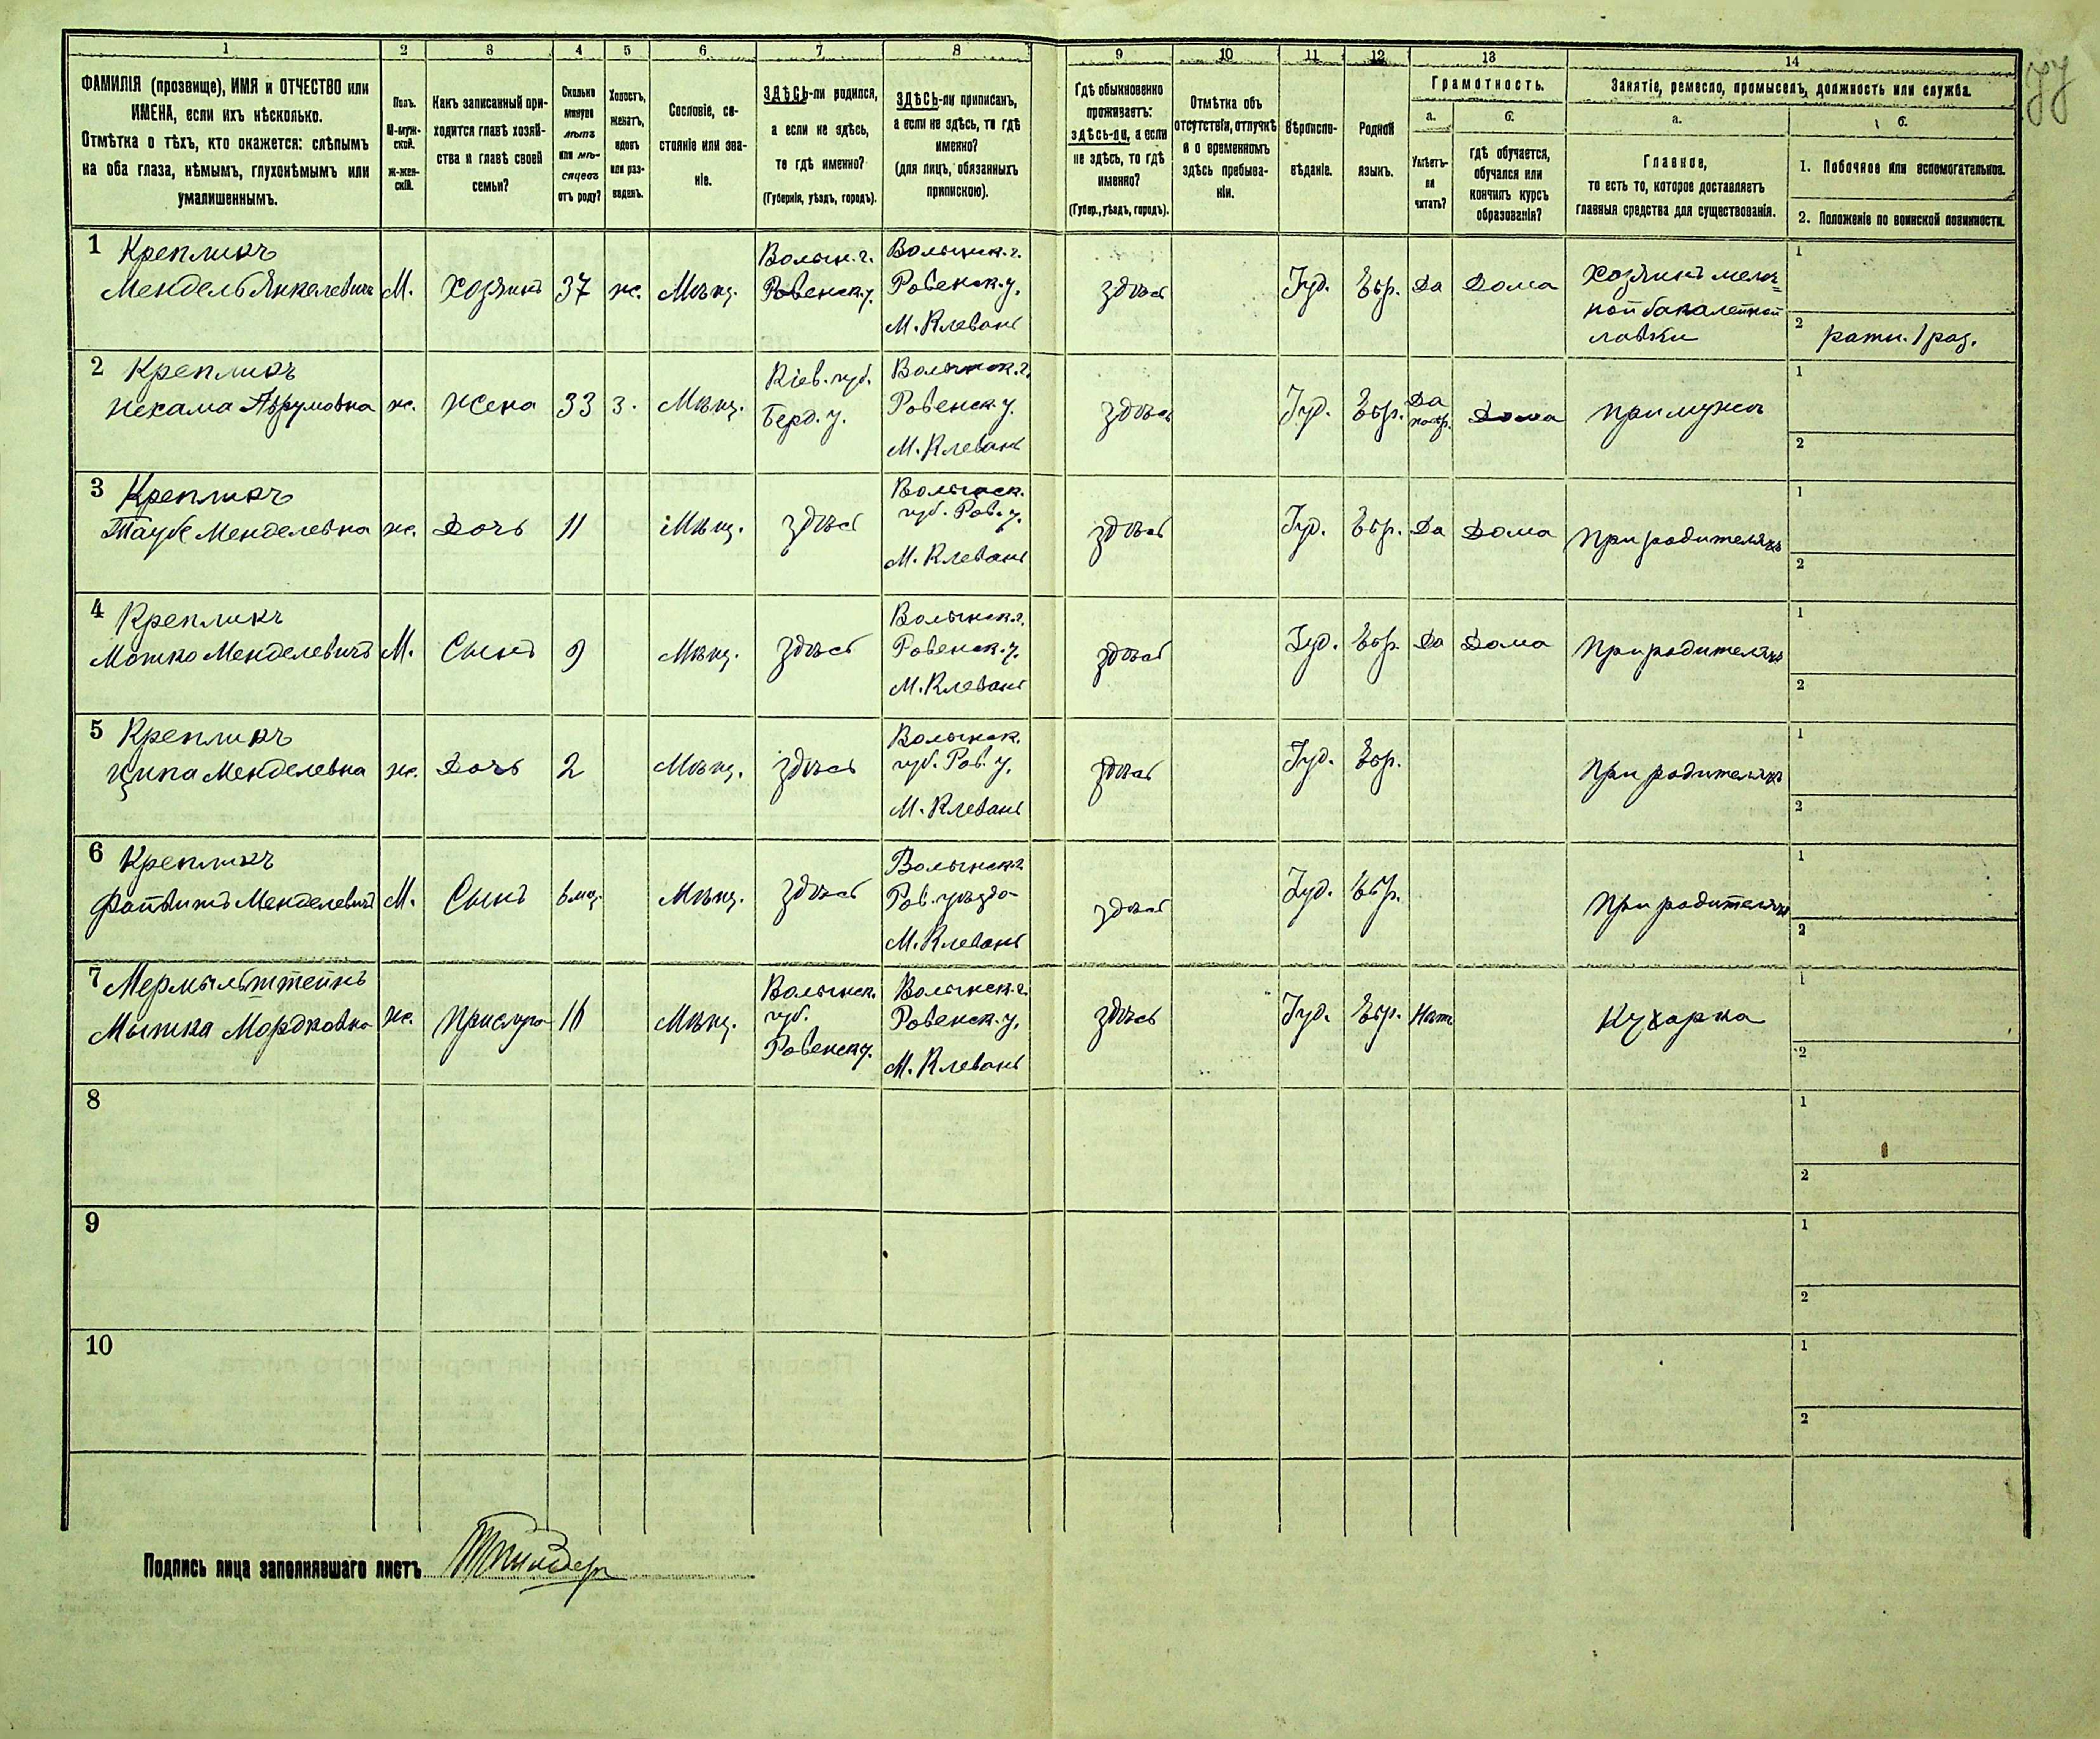 1 2 3 4 5 6 7 8 9 10 11 12 13 14
ФАМИЛІЯ (прозвище), ИМЯ и ОТЧЕСТВО или
ИМЕНА, если ихъ нѣсколько.
Отмѣтка о тѣхъ, кто окажется: слѣпымъ
на оба глаза, нѣмымъ, глухонѣмымъ или
умалишеннымъ.
Полъ.
М-муж-
ской.
Ж-жен-
скій.
Какъ записанный при-
ходится главѣ хозяй-
ства и главѣ своей
семьи?
Сколько
минуло
лѣтъ
или мѣ-
сяцевъ
отъ роду?
Холостъ,
женатъ,
вдовъ
или раз-
веденъ.
Сословіе, со-
стояніе или зва-
ніе.
ЗДѢСЬ-ли родился,
а если не здѣсь,
то гдѣ именно?
(Губернія, уѣздъ, городъ).
ЗДѢСЬ-ли приписанъ,
а если не здѣсь, то гдѣ
именно?
(для лицъ, обязанныхъ
припискою).
Гдѣ обыкновенно
проживаетъ:
здѣсь-ли, а если
не здѣсь, то гдѣ
именно?
(Губер., уѣздъ, городъ).
Отмѣтка объ
отсутствіи, отлучкѣ
и о временномъ
здѣсь пребыва-
ніи.
Вѣроиспо-
вѣданіе.
Родной
языкъ.
Грамотность.
а.
Умѣетъ-
ли
читать?
б.
гдѣ обучается,
обучался или
кончилъ курсъ
образованія?
Занятіе, ремесло, промыселъ, должность или служба.
а.
Главное,
то есть то, которое доставляетъ
главныя средства для существованія.
б.
1. Побочное или вспомогательное.
2. Положеніе по воинской повинности.
1 Крепликъ
Мендель Янкелевичъ
М.
Хозяинъ
37
ж.
Мѣщ.
Волын. г.
Ровенск. у.
Волынск. г.
Ровенск. у.
М. Клевань
здѣсь
Іуд.
Евр.
Да
Дома
Хозяинъ мелоч-
ной бакалейной
лавки
1
2 ратн. 1 раз.
2 Крепликъ
Нехама Аврумовна
ж.
Жена
33
з.
Мѣщ.
Кіев. губ.
Берд. у.
Волынск. г.
Ровенск. у.
М. Клевань
здѣсь
Іуд.
Евр.
Да
Дома
При мужѣ
1
2
3 Крепликъ
Таубе Менделевна
ж.
Дочь
11
Мѣщ.
здѣсь
Волынск.
губ. Ров. у.
М. Клевань
здѣсь
Іуд.
Евр.
Да
Дома
При родителяхъ
1
2
4 Крепликъ
Мошко Менделевичъ
М.
Сынъ
9
Мѣщ.
здѣсь
Волынск. г.
Ровенск. у.
М. Клевань
здѣсь
Іуд.
Евр.
Да
Дома
При родителяхъ
1
2
5 Крепликъ
Ципа Менделевна
ж.
Дочь
2
Мѣщ.
здѣсь
Волынск.
губ. Ров. у.
М. Клевань
здѣсь
Іуд.
Евр.
При родителяхъ
1
2
6 Крепликъ
Файвишъ Менделевичъ
М.
Сынъ
6 мѣс.
Мѣщ.
здѣсь
Волынск. г.
Ров. уѣзда
М. Клевань
здѣсь
Іуд.
Евр.
При родителяхъ
1
2
7 Мермельштейнъ
Мышка Мордковна
ж.
Прислуга
16
Мѣщ.
Волынск.
губ.
Ровенск. у.
Волынск. г.
Ровенск. у.
М. Клевань
здѣсь
Іуд.
Евр.
Нѣтъ
Кухарка
1
2
8
1
2
9
1
2
10
1
2
Подпись лица заполнявшаго листъ